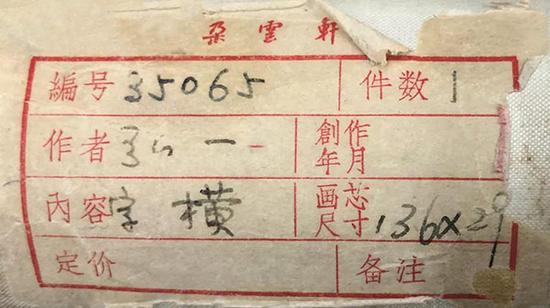 朵雲軒
編号 35065 件数 1
作者 弘一 創作年月
內容 字横 画芯尺寸 136×29
定价 备注